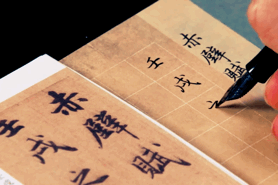 赤壁賦
壬戌
赤壁賦
壬戌之